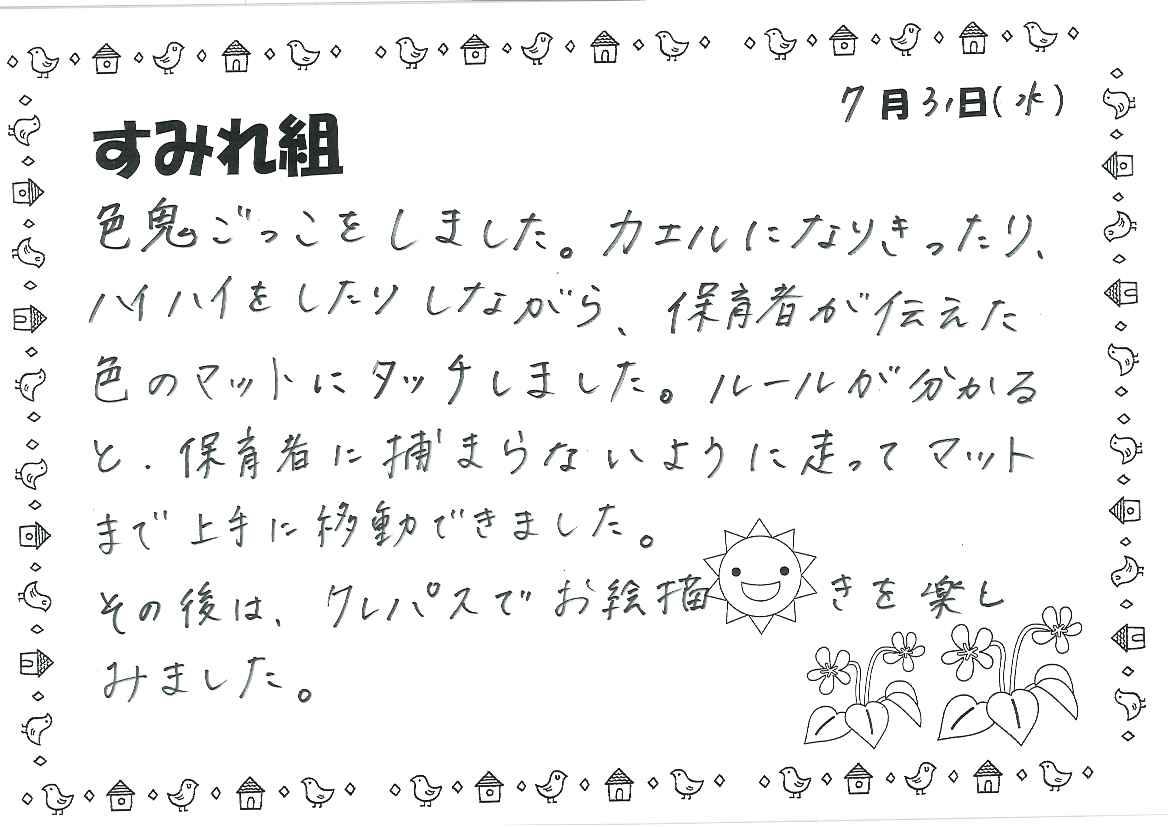 7月31日(水)
すみれ組
色鬼ごっこをしました。カエルになりきったり、
ハイハイをしたりしながら、保育者が伝えた
色のマットにタッチしました。ルールが分かる
と、保育者に捕まらないように走ってマット
まで上手に移動できました。
その後は、クレパスでお絵描きを楽し
みました。